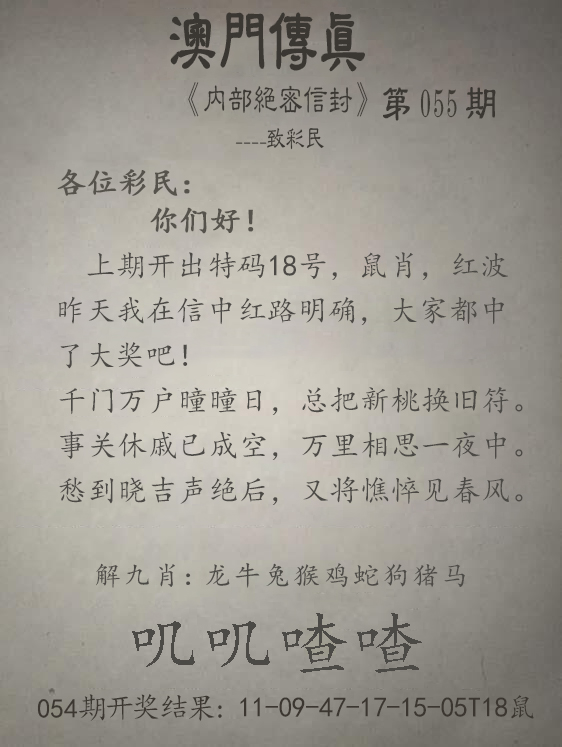 澳門傳真
《内部絕密信封》第055期
----致彩民
各位彩民：
你们好！
上期开出特码18号，鼠肖，红波
昨天我在信中红路明确，大家都中
了大奖吧！
千门万户曈曈日，总把新桃换旧符。
事关休戚已成空，万里相思一夜中。
愁到晓吉声绝后，又将憔悴见春风。
解九肖：龙牛兔猴鸡蛇狗猪马
叽叽喳喳
054期开奖结果：11-09-47-17-15-05T18鼠